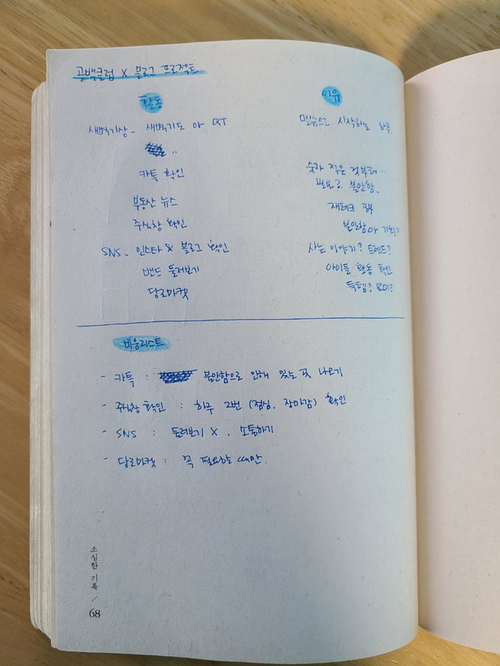 고백클럽 X 블로그 프로젝트
힌트 이유
새벽기상 - 새벽기도 or QT 믿음으로 시작하는 하루
카톡 확인 숫자 적은 것부터...
필요? 불안함.
부동산 뉴스 재테크 공부
주식창 확인 불안함 or 기회?
SNS - 인스타 & 블로그 확인 사는 이야기? 트렌드?
밴드 둘러보기 아이들 활동 확인
당근마켓 득템? 재미?
비움리스트
- 카톡 : 불안함으로 인해 있는 곳 나오기
- 주식창 확인 : 하루 2번 (점심, 장마감) 확인
- SNS : 둘러보기 X, 소통하기
- 당근마켓 : 꼭 필요할 때만.
소심한 기록 / 68